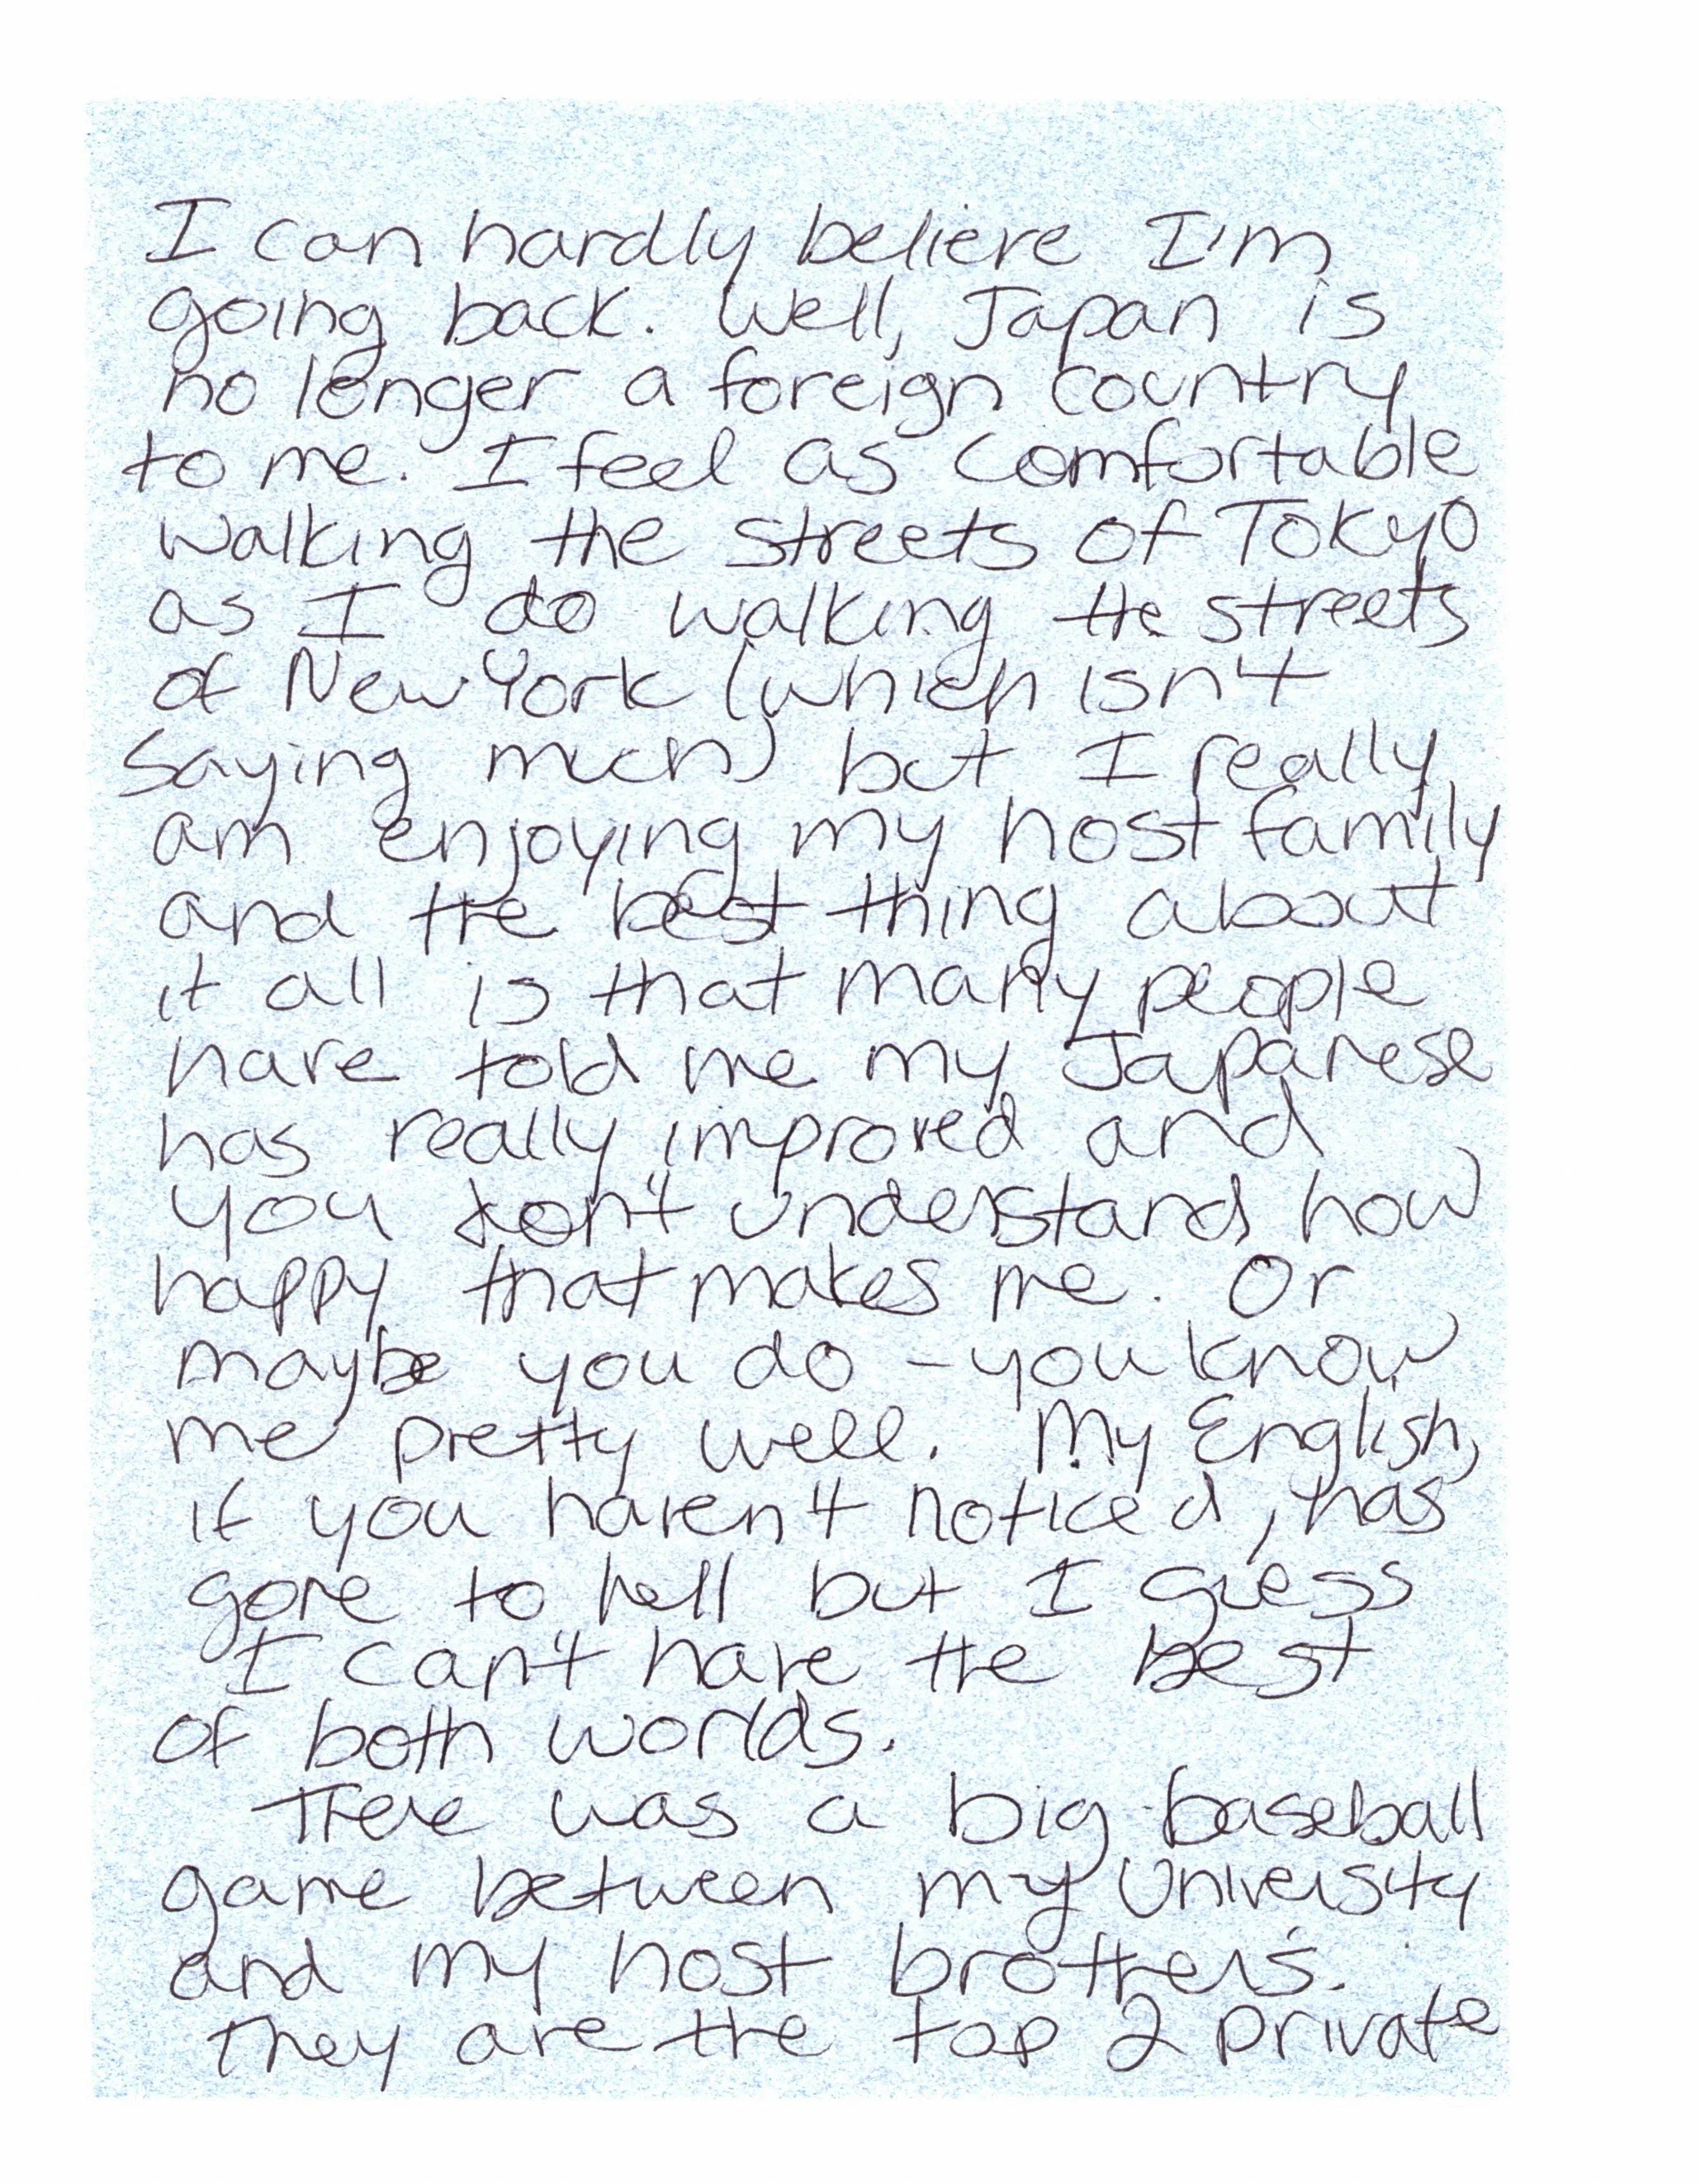 I can hardly believe I'm
going back. Well, Japan is
no longer a foreign country
to me. I feel as comfortable
walking the streets of Tokyo
as I do walking the streets
of New York (which isn't
saying much) but I really
am enjoying my host family
and the best thing about
it all is that many people
have told me my Japanese
has really improved and
you don't understand how
happy that makes me. Or
maybe you do - you know
me pretty well. My English,
if you haven't noticed, has
gone to hell but I guess
I can't have the best
of both worlds.
There was a big baseball
game between my University
and my host brother's.
They are the top 2 private